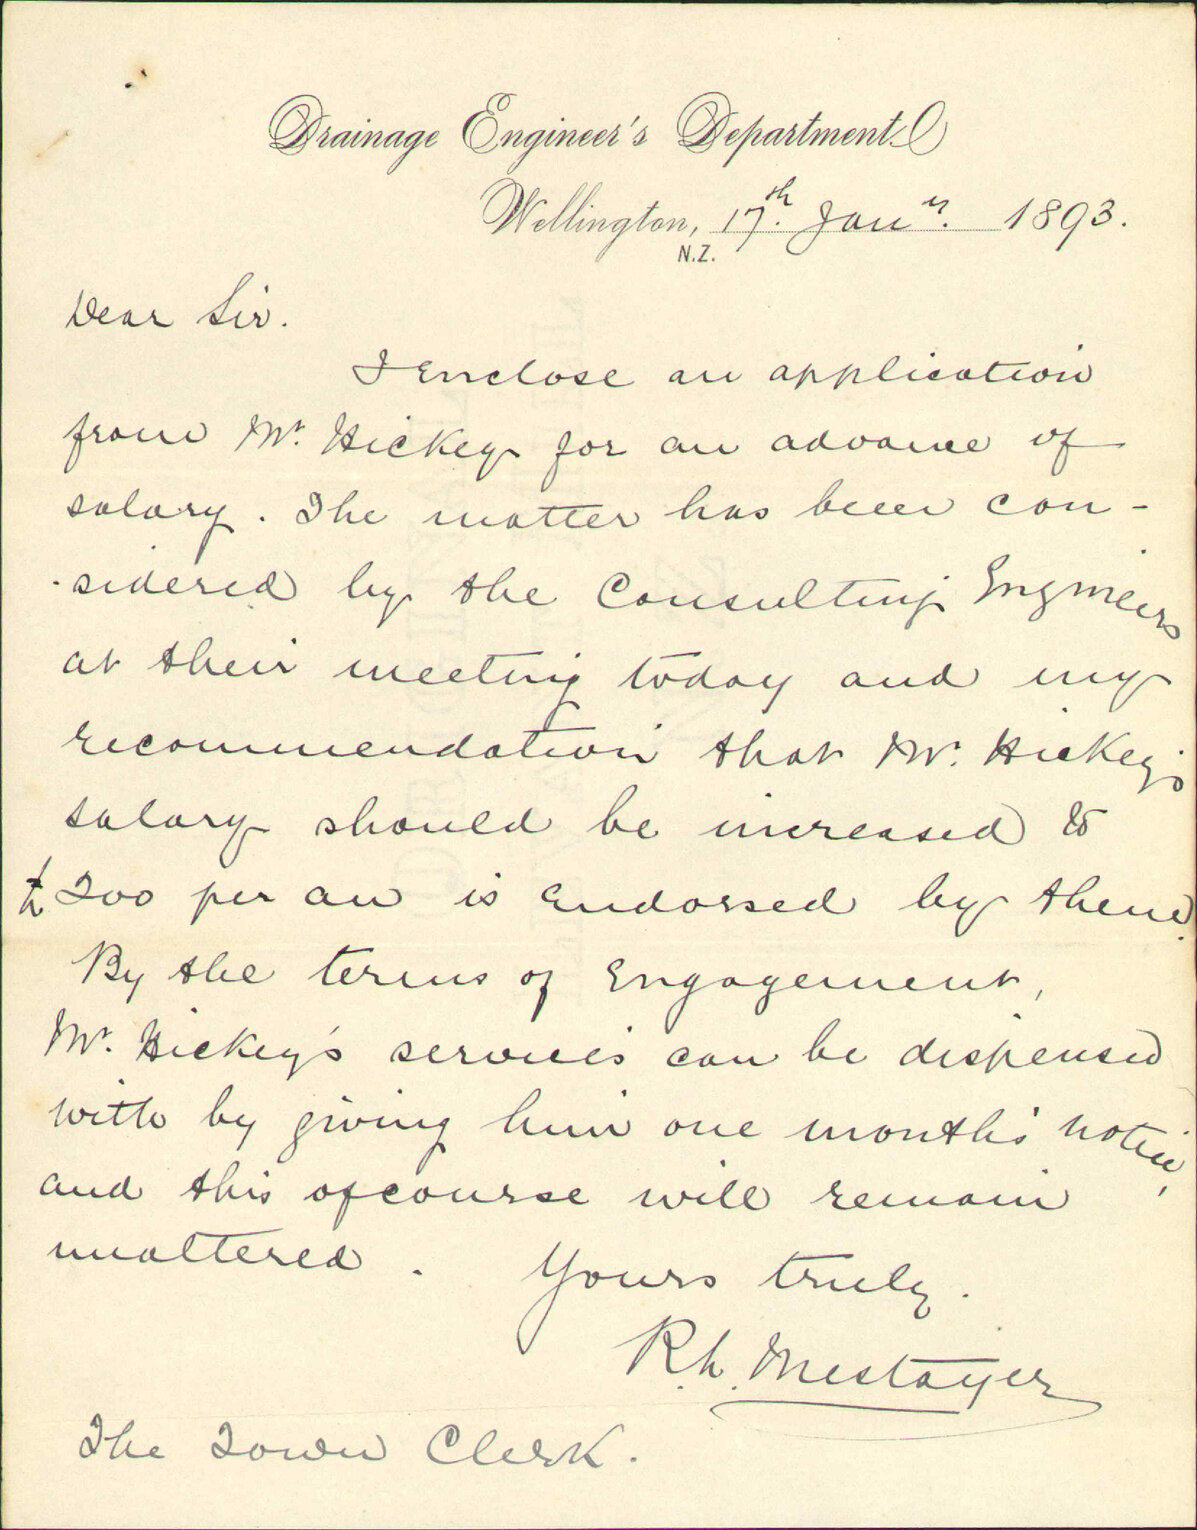 Drainage Engineer's Department
Wellington, 17th. Jany. 1893.
N.Z.
Dear Sir.
I enclose an application
from Mr. Hickey for an advance of
salary. The matter has been con-
-sidered by the Consulting Engineers
at their meeting today and my
recommendation that Mr. Hickey's
salary should be increased to
£200 per an is endorsed by them.
By the terms of Engagement,
Mr. Hickey's services can be dispensed
with by giving him one month's notice,
and this ofcourse will remain
unaltered.
Yours truly.
R.L. Mestayer
The Town Clerk.